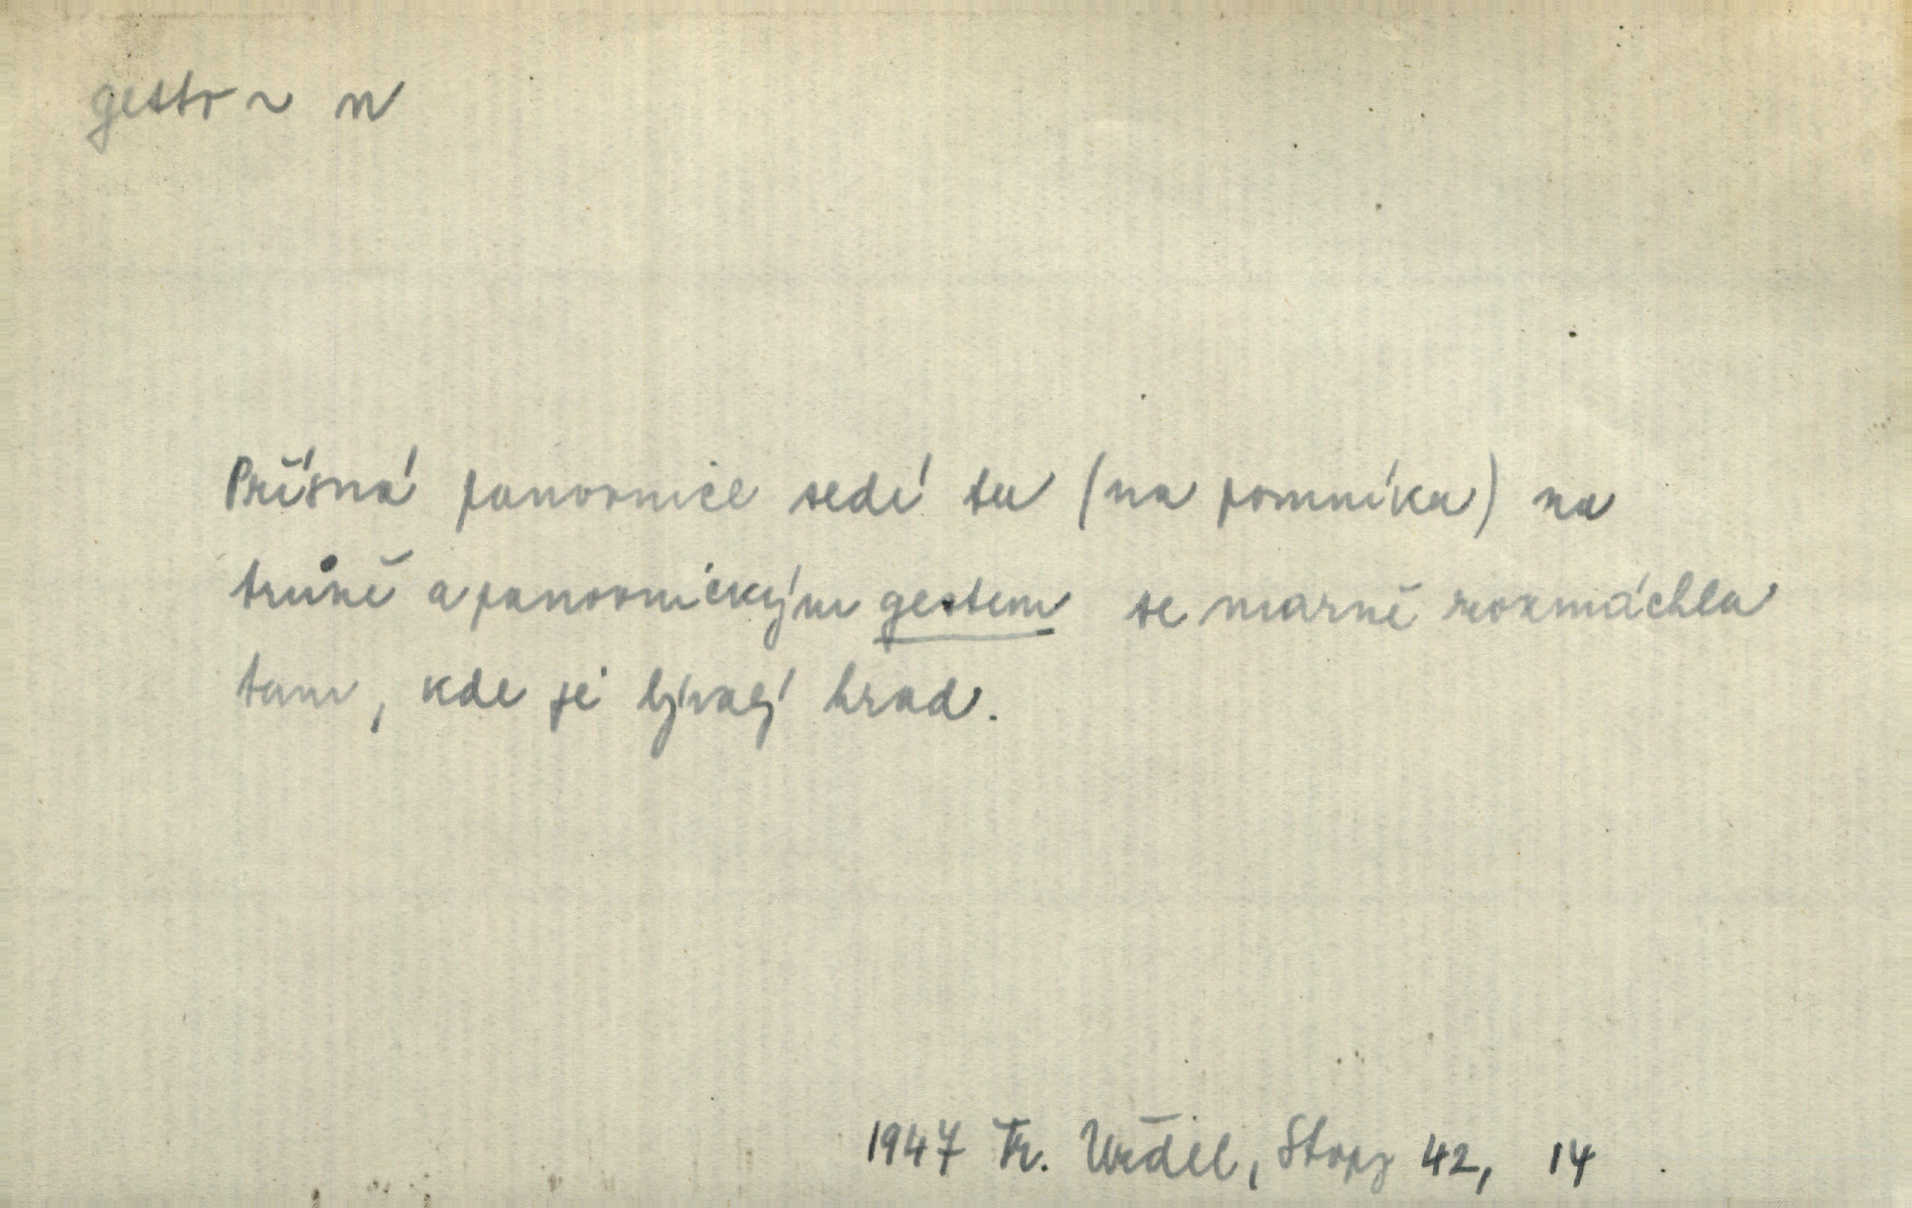 gesto ~ n
Přísná panovnice sedí tu (na pomníku) na
trůně a panovnickým gestem se marně rozmáchla
tam, kde je bývalý hrad.
1947 Fr. Uždil, Stopy 42, 14